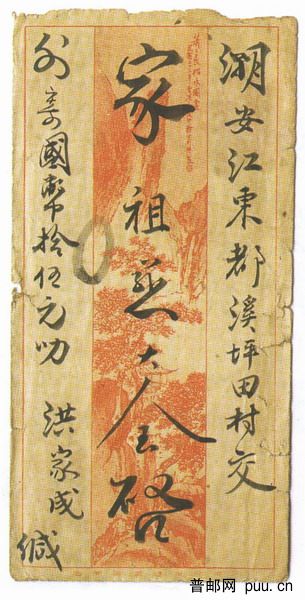 潮安江東都溪坪田村交
家祖慈大人玉啓
外寄國幣拾伍元叻 洪家成緘
普邮网 puu.cn